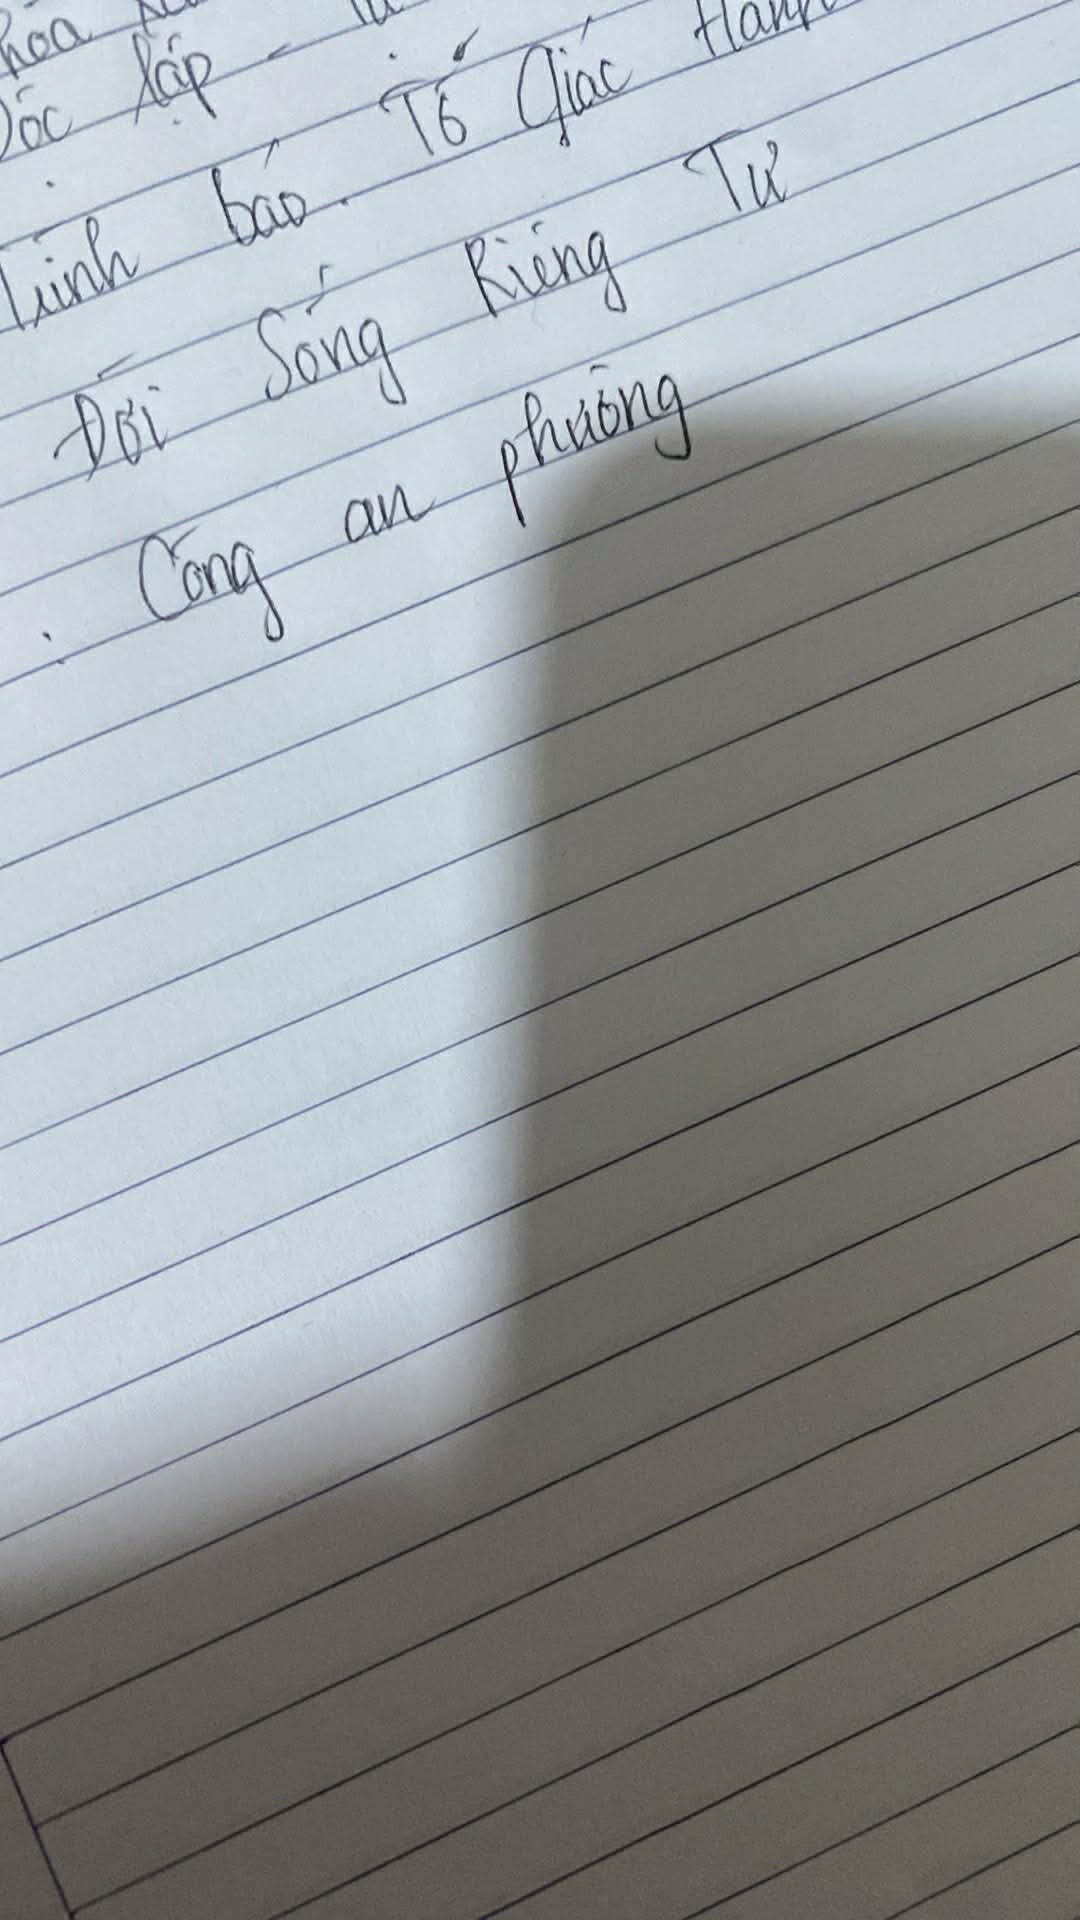 Độc lập -
Trình báo. Tố Giác Hành
Đời Sống Riêng Tư
Công an phường